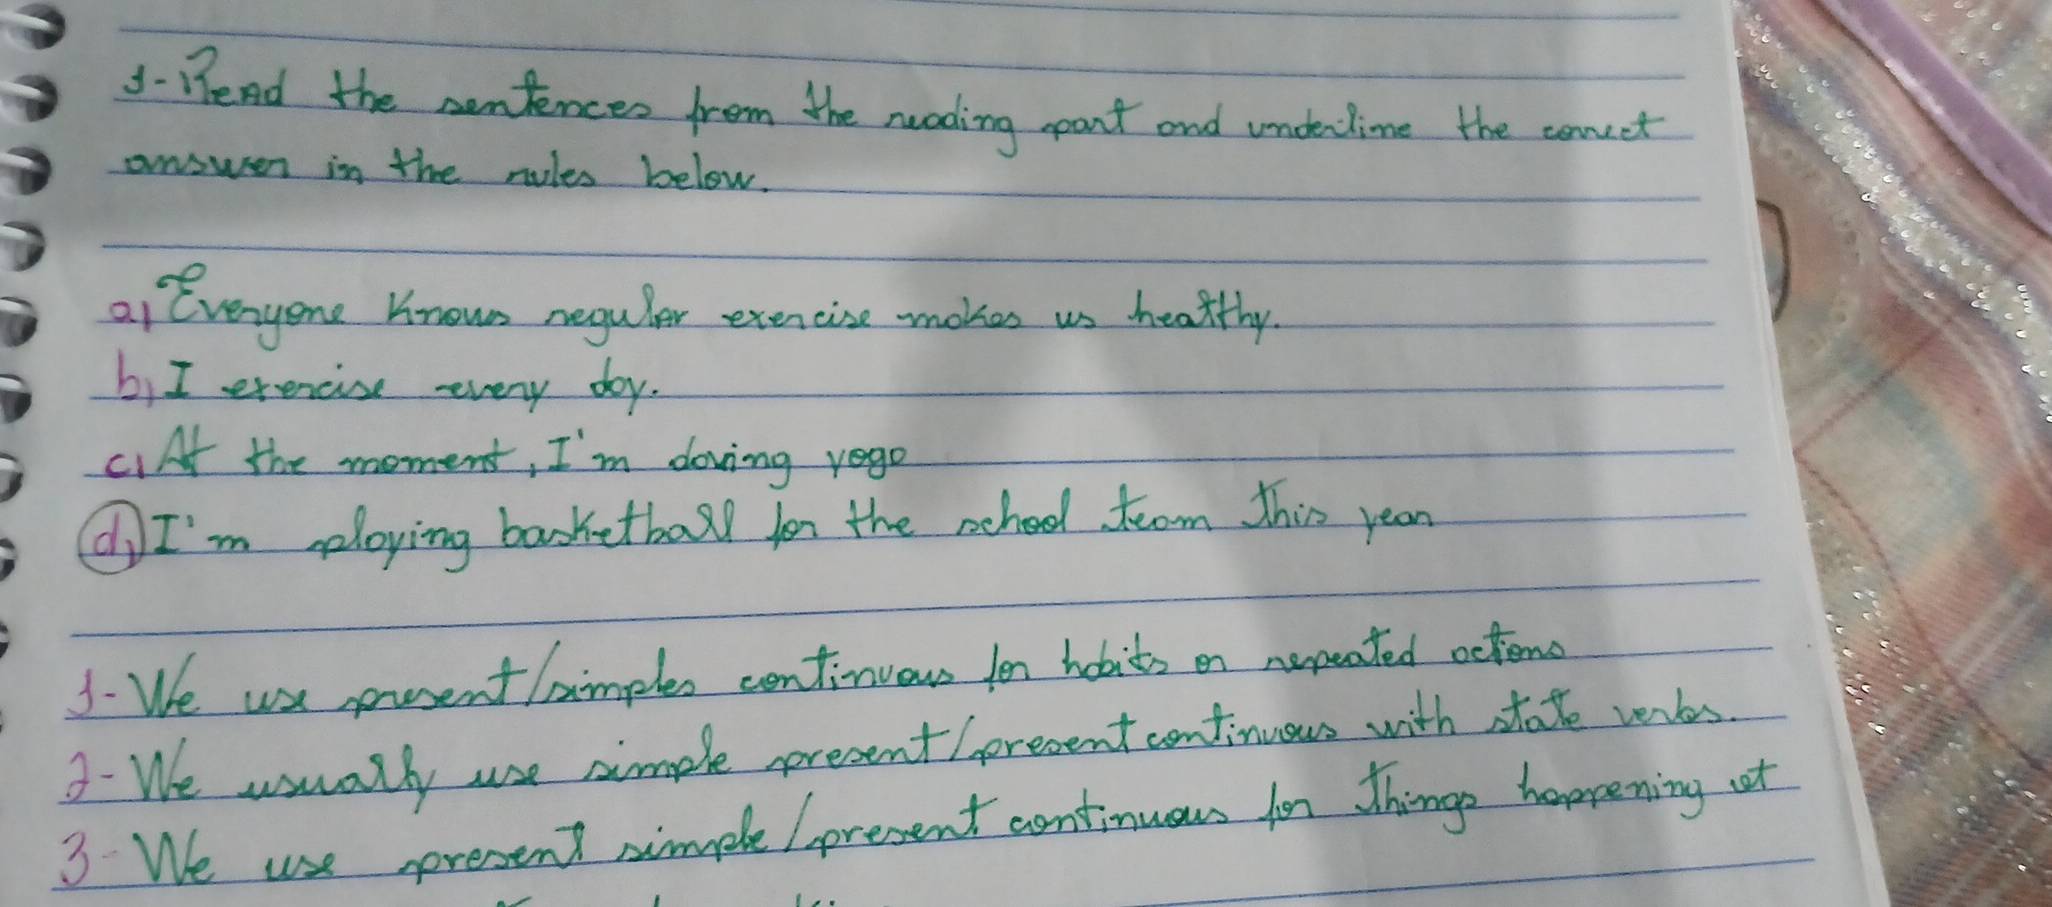 1-Read the sentences from the reading part and underline the correct
answer in the rules below.
a) Everyone Knows regular exercise makes us healthy.
b) I exercise every day.
c) At the moment, I'm doving yoga
d) I'm playing basketball for the school team this year
1- We use present/simples continuous for habits or repeated actions
2- We usually use simple present/present continuous with state verbs.
3- We use present simple/present continuous for things happening at